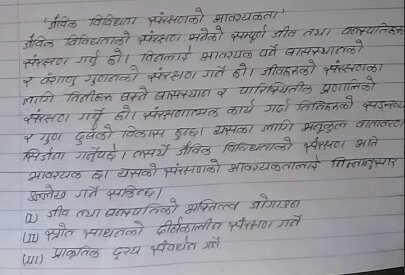 'जैविक विविधता संरक्षणको आवश्यकता'
जैविक विविधताको संरक्षण भनेको सम्पूर्ण जीव तथा वनस्पतिहरूको
संरक्षण गर्नु हो। तिनलाई आवश्यक पर्ने वासस्थानको
र वंशाणु गुणतको संरक्षण गर्ने हो। जीवहरूको संरक्षणका
लागि तिनीहरू बस्ने वासस्थान र पारिस्थितिक प्रणालीको
संरक्षण गर्नु हो। संरक्षणात्मक कार्य गर्दा तिनिहरूको
र गुण दुवैको विकास हुन्छ। यसका लागि अनुकूल वातावरण
सिर्जना गर्नुपर्छ। तसर्थ जैविक विविधताको संरक्षण अति
आवश्यक छ। यसको संरक्षणको आवश्यकतालाई निम्नानुसार
उल्लेख गर्न सकिन्छ।
(i) जीव तथा वनस्पतिको अस्तित्व जोगाउन
(ii) स्रोत साधनको दीर्घकालीन संरक्षण गर्न
(iii) प्राकृतिक दृश्य संवर्धन गर्न